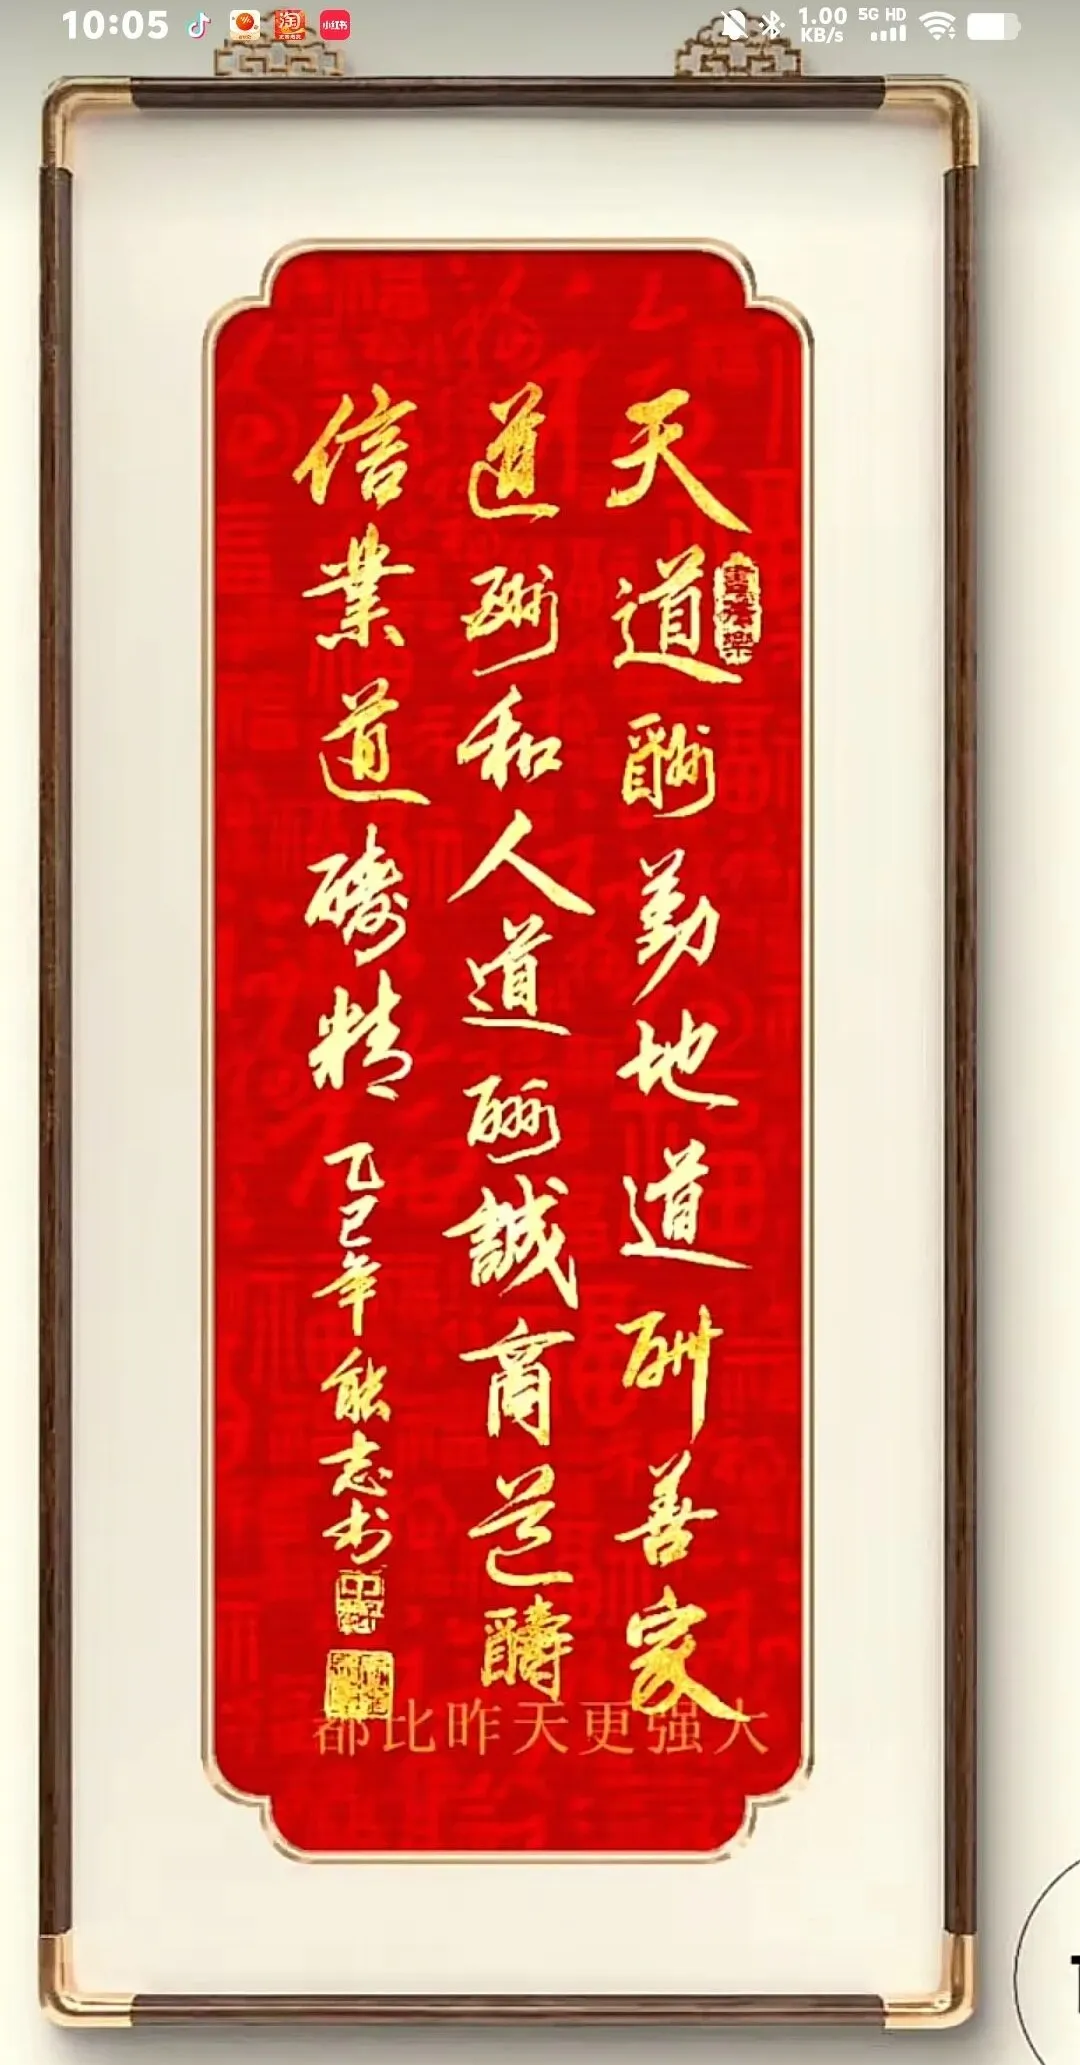 10:05
小红书
1.00 KB/s 5G HD
天道酬勤地道酬善家
道酬和人道酬誠商道酬
信業道酬精
乙巳年能志书
都比昨天更强大